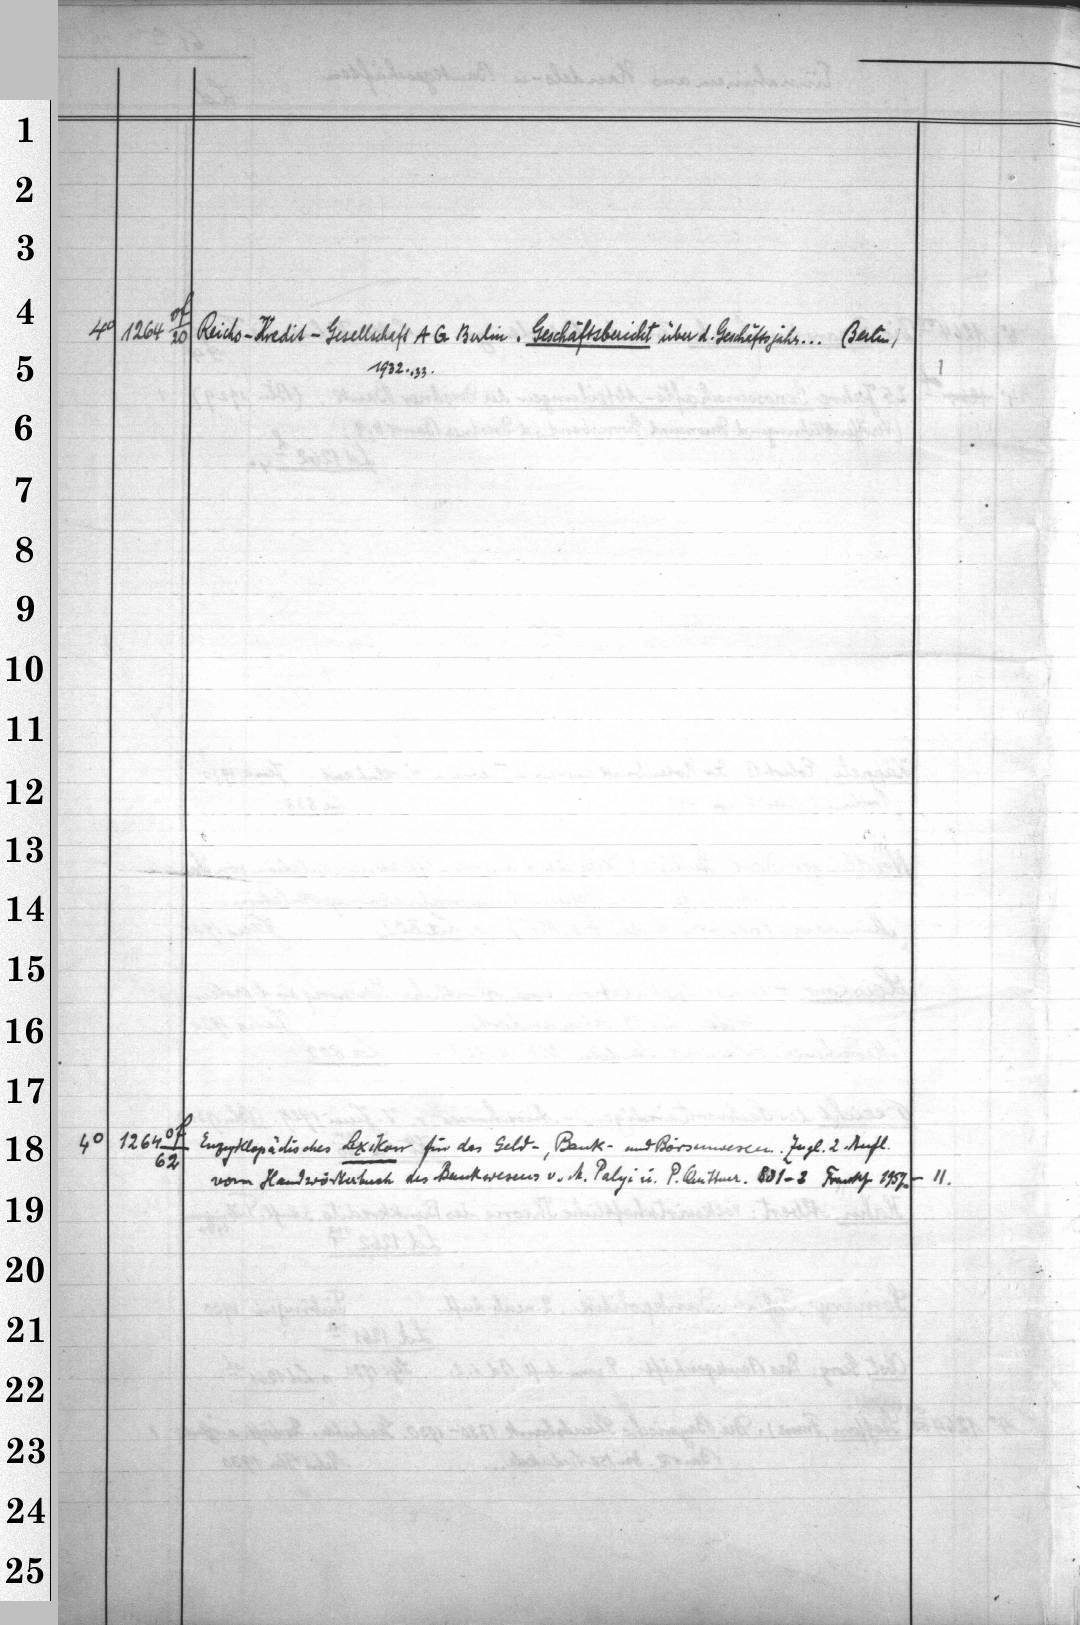 1
2
3
4
4° 1264 of/20 Reichs-Kredit-Gesellschaft A G Berlin. Geschäftsbericht über d. Geschäftsjahr... (Berlin)
5
1932.,33.
6
7
8
9
10
11
12
13
14
15
16
17
18
4° 1264 of/62 Enzyklopädisches Lexikon für das Geld-, Bank- und Börsenwesen. Zugl. 2. Aufl.
vom Handwörterbuch des Bankwesens v. M. Palyi u. P. Quittner. Bd 1-2 Frankf 1957.- II.
19
20
21
22
23
24
25